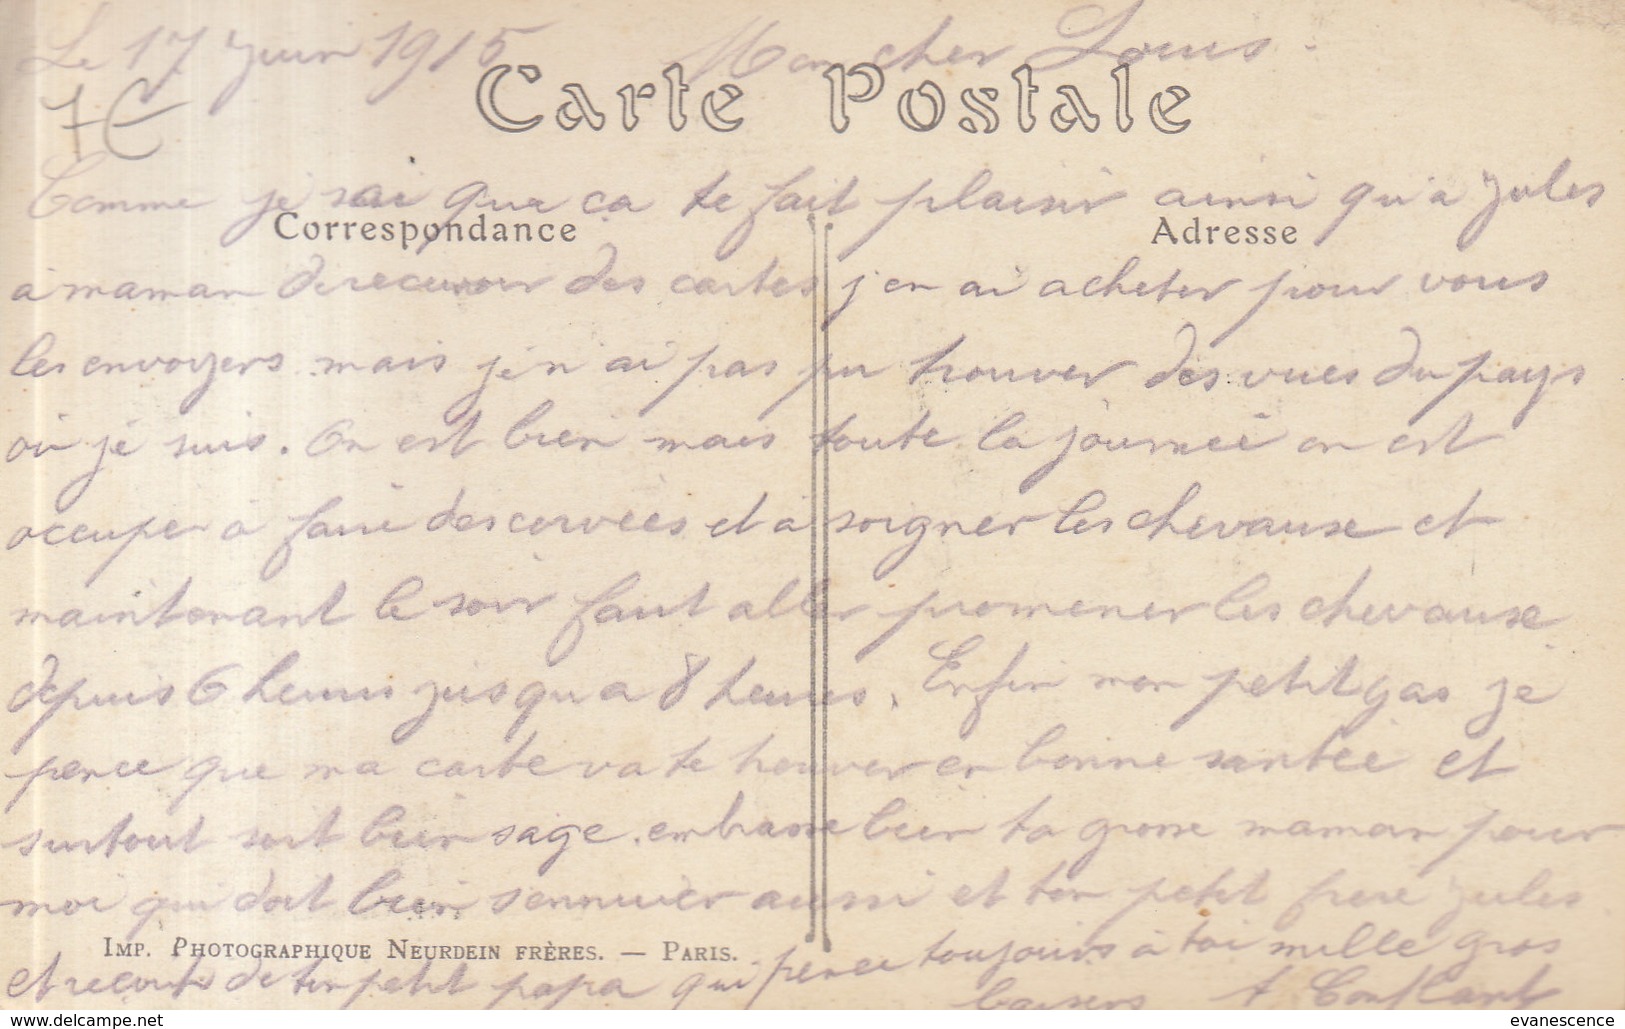 Le 17 Juin 1915 Mon cher Louis.
7€
Carte Postale
Comme je sai que ca te fait plaisir ainsi qu'a Jules
Correspondance Adresse
a maman de recevoir des cartes j'en ai acheter pour vous
les envoyers mais j'en ai pas pu trouver des vues du pays
où je suis. On est bien mais toute la journeé on est
occuper a faire des corveés et a soigner les chevause et
maintenant le soir faut aller promener les chevause
depuis 6 heures jusqu a 8 heures. Enfin mon petit gas je
pence que ma carte va te trouver en bonne santée et
surtout soit bien sage. embrasse bien ta grosse maman pour
moi qui doit bien sennuier aussi et ton petit frere Jules
Imp. Photographique Neurdein frères. — Paris.
et recoit de ton petit papa qui pence toujours à toi mille gros
baisers
evanescence
www.delcampe.net